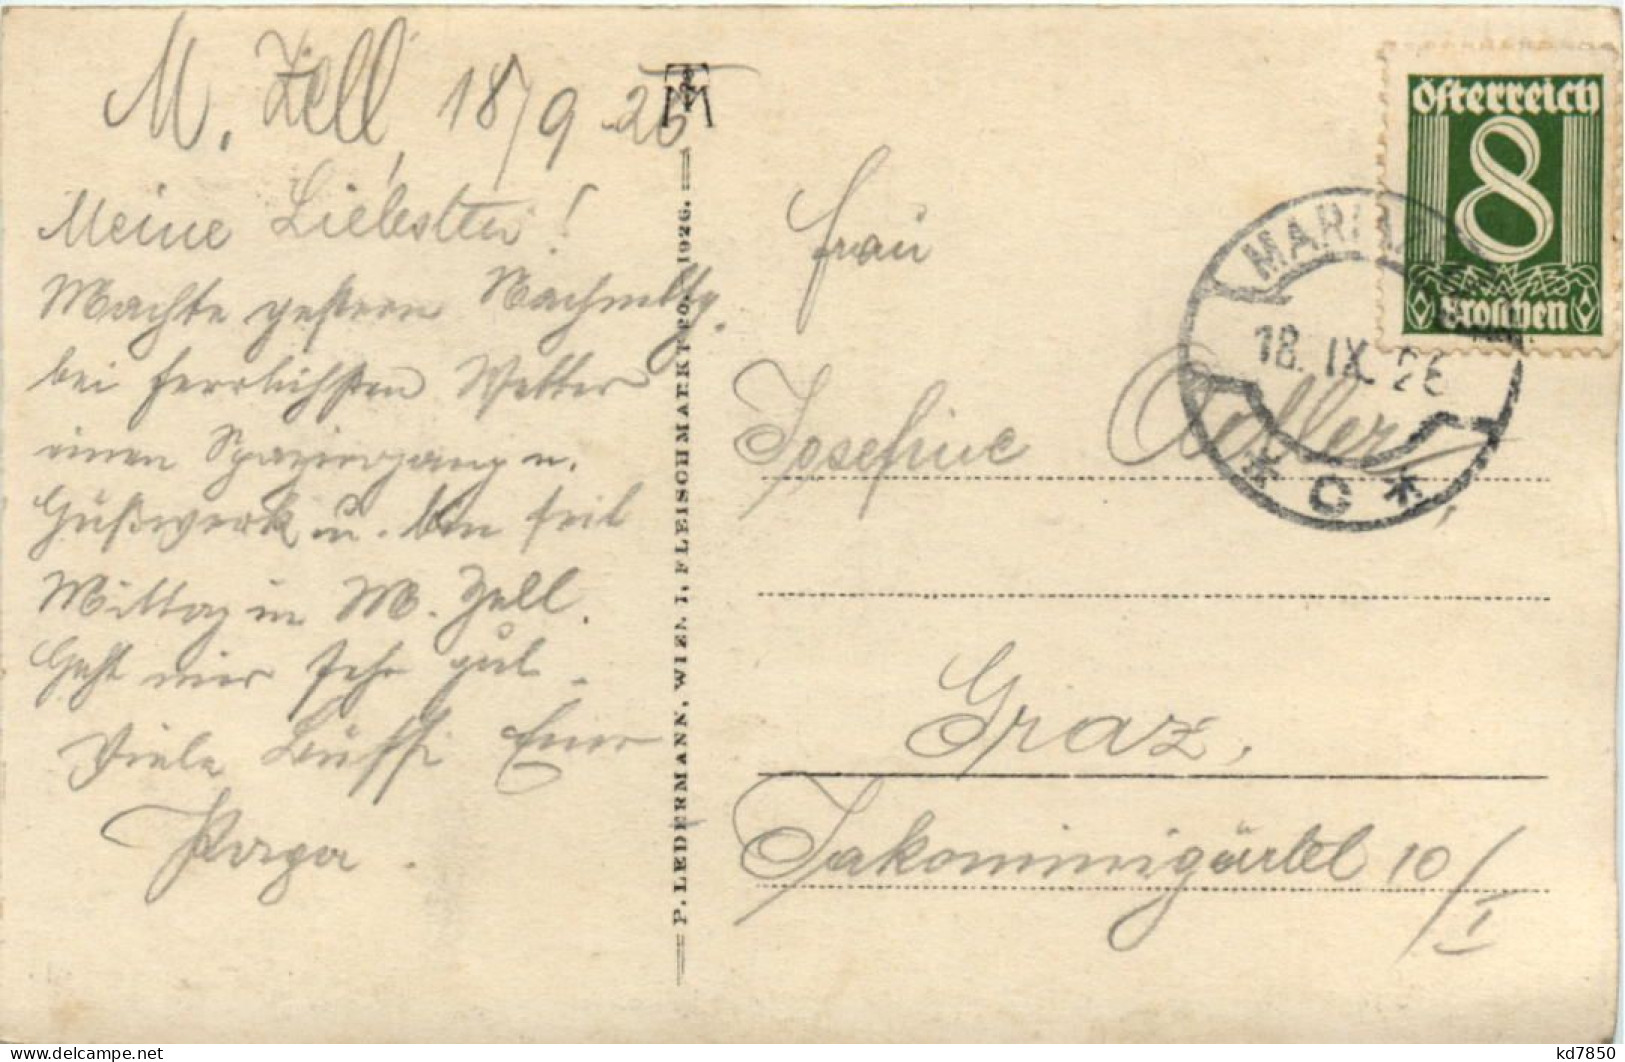 M. Zell, 18/9 26
Meine Liebsten!
Machte gestern Nachmittg.
bei herrlichsten Wetter
einen Spaziergang n.
Gußwerk u. bin seit
Mittag in M. Zell.
Geht mir sehr gut.
Viele Bussi Euer
Papa.
P. LEDERMANN, WIEN I, FLEISCHMARKT 1926.
Österreich
8
Groschen
MARIAZELL
18. IX. 26
* C *
Frau
Josefine Adler,
Graz,
Jakominigürtel 10/I
kd7850